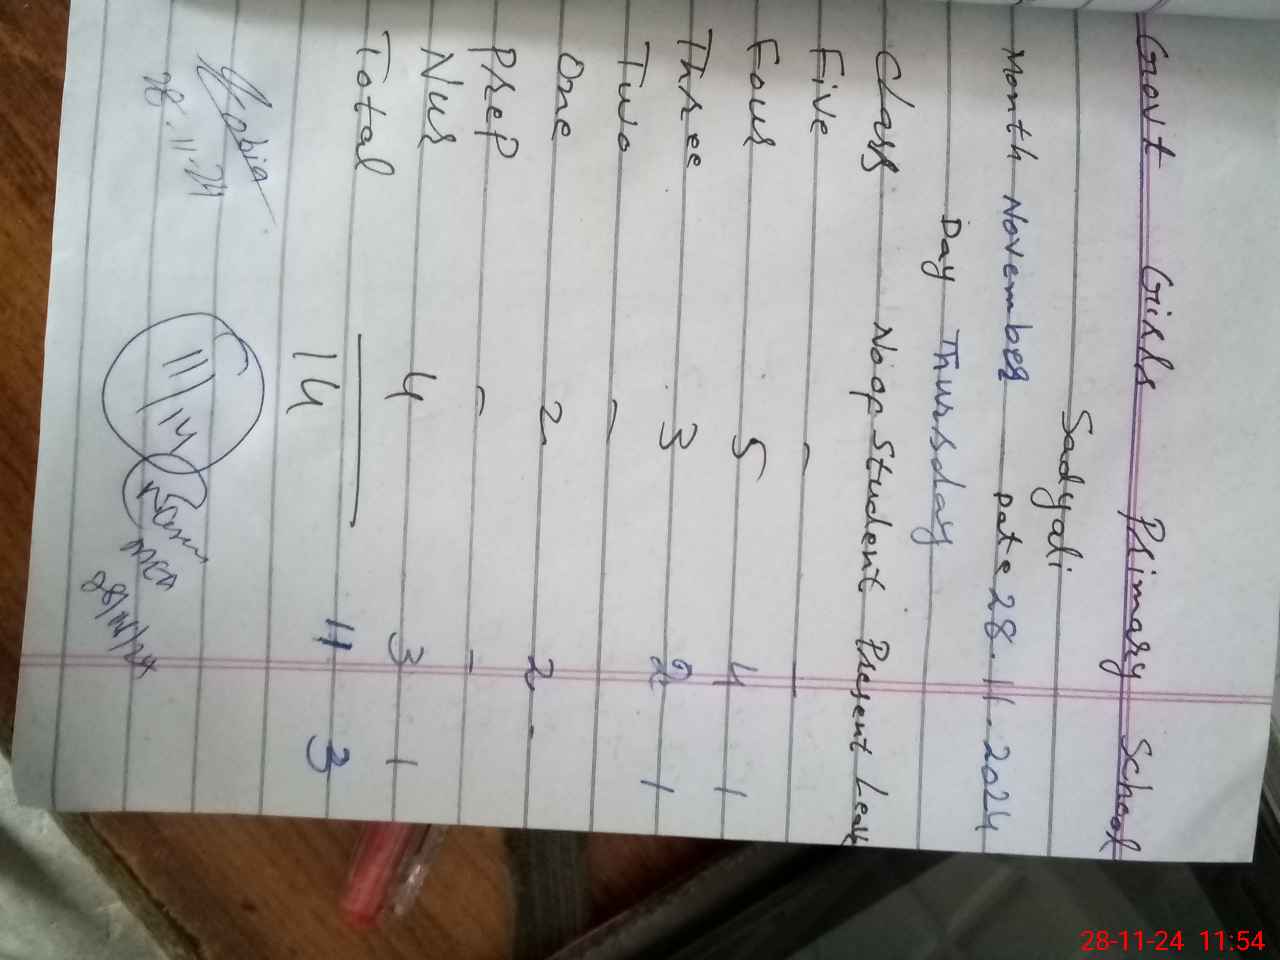 Govt Girls Primary School
Sadyali
Month November Date 28.11.2024
Day Thursday
Class No of Student Present Leave
Five - -
Four 5 4 1
Three 3 2 1
Two -
One 2 2 -
Prep - -
Nur 4 3 1
Total 14 11 3
28.11.24
11/14
28/11/24
28-11-24 11:54